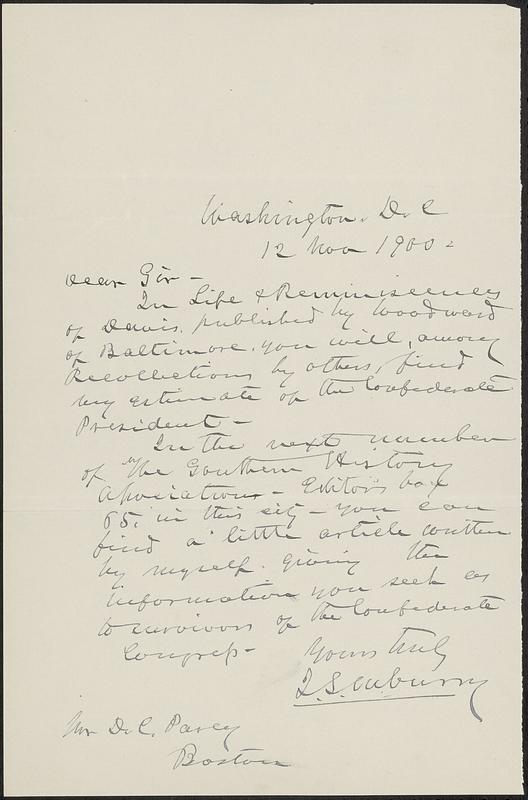 Washington. D.C
12 Nov 1900.
Dear Sir -
In Life & Reminiscences
of Davis, published by Woodward
of Baltimore, you will, among
Recollections by others, find
my estimate of the Confederate
President -
In the next number
of "The Southern History
Association - Editor's box
65, in this city - you can
find a little article written
by myself. giving the
information you seek as
to survivors of the Confederate
Congress -
Yours truly
Mr D.C.
Boston